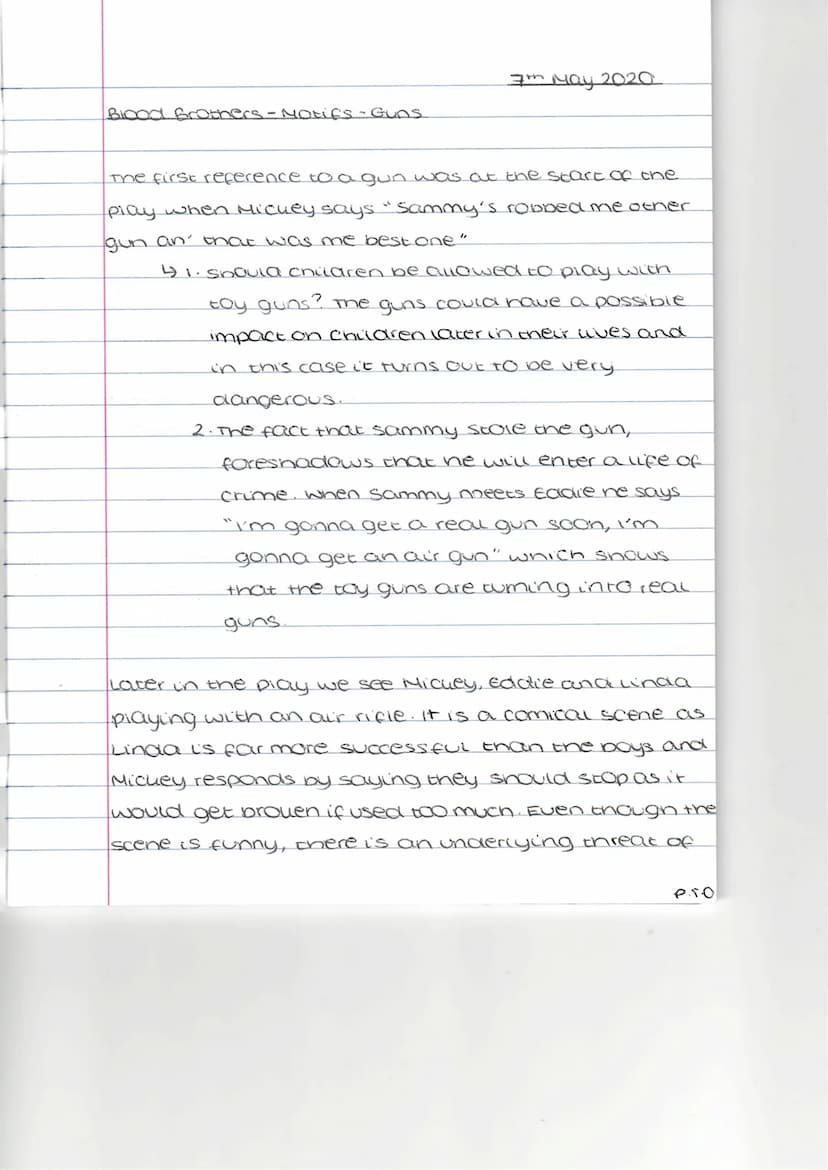 7th May 2020
Blood Brothers - Motifs - Guns
The first reference to a gun was at the start of the
play when Mickey says "Sammy's robbed me other
gun an' that was me best one"
↳ 1. Should children be allowed to play with
toy guns? The guns could have a possible
impact on children later in their lives and
in this case it turns out to be very
dangerous.
2. The fact that Sammy stole the gun,
foreshadows that he will enter a life of
crime. When Sammy meets Eddie he says
"I'm gonna get a real gun soon, I'm
gonna get an air gun" which shows
that the toy guns are turning into real
guns.
Later in the play we see Mickey, Eddie and Linda
playing with an air rifle. It is a comical scene as
Linda is far more successful than the boys and
Mickey responds by saying they should stop as it
would get broken if used too much. Even though the
scene is funny, there is an underlying threat of
P.T.O